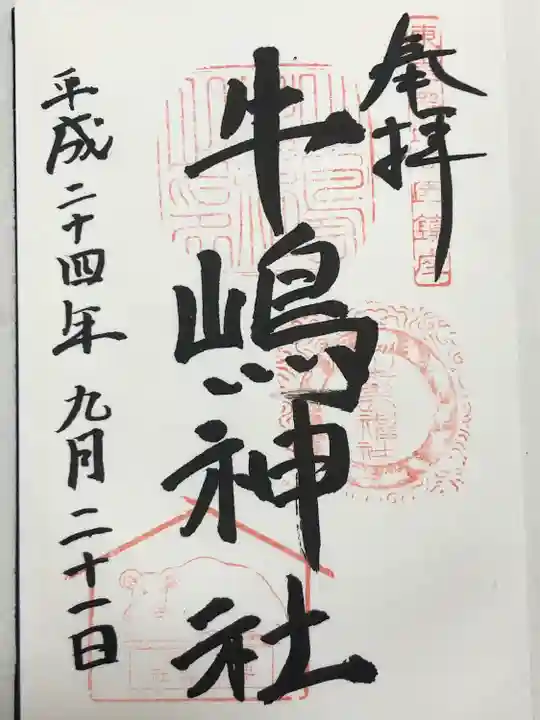 奉拝
牛嶋神社
平成二十四年九月二十一日